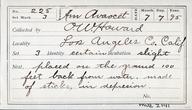 No. 225 Name Am Avocet
Set Mark 3 7/7/95
Collected by O.W. Howard
Locality Los Angeles Co. Calif
Set 3 Identity certain Incubation slight
Nest placed on the ground 100
feet back from water made
of sticks, in depression